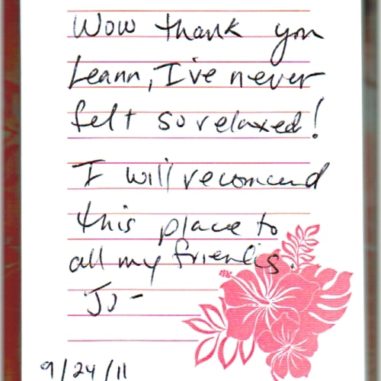 Wow thank you
Leann, I've never
felt so relaxed!
I will recomend
this place to
all my friends.
Jo -
9/24/11